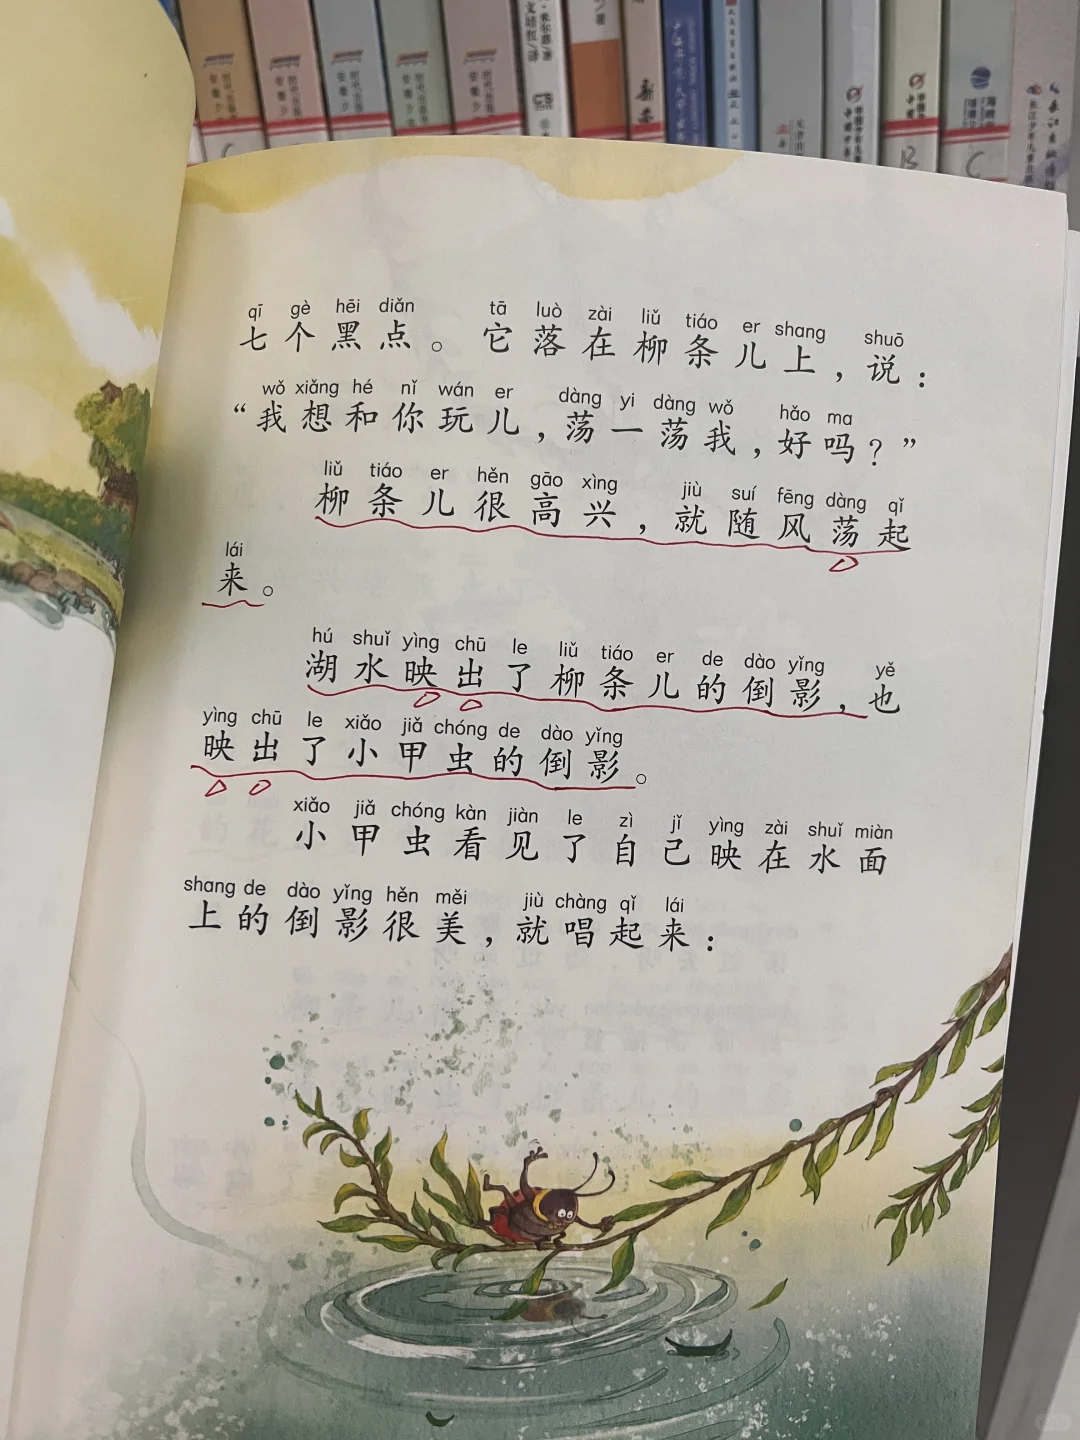 qī gè hēi diǎn tā luò zài liǔ tiáo er shang shuō
七个黑点。它落在柳条儿上，说：
wǒ xiǎng hé nǐ wán er dàng yi dàng wǒ hǎo ma
“我想和你玩儿，荡一荡我，好吗？”
liǔ tiáo er hěn gāo xìng jiù suí fēng dàng qǐ
柳条儿很高兴，就随风荡起
lái
来。
hú shuǐ yìng chū le liǔ tiáo er de dào yǐng yě
湖水映出了柳条儿的倒影，也
yìng chū le xiǎo jiǎ chóng de dào yǐng
映出了小甲虫的倒影。
xiǎo jiǎ chóng kàn jiàn le zì jǐ yìng zài shuǐ miàn
小甲虫看见了自己映在水面
shang de dào yǐng hěn měi jiù chàng qǐ lái
上的倒影很美，就唱起来：